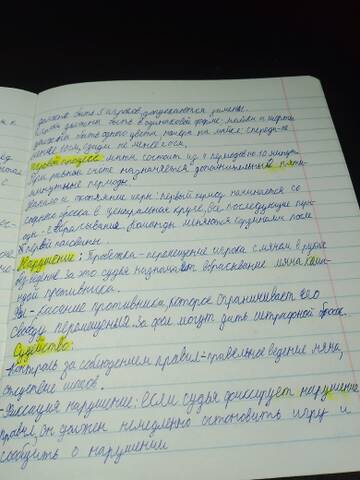 должно быть 5 игроков, допускаются замены.
должны быть в одинаковой форме: майки и шорты
должны быть одного цвета, номера на майке: спереди не
менее 10см, сзади не менее 20см.
Игровой процесс: матч состоит из 4 периодов по 10 минут.
При равном счете назначается дополнительный пяти-
минутные периоды.
Начало и окончание игры: первый период начинается со
спорного броска в центральном круге, все последующие пери-
оды - с вбрасывания. Команды меняются корзинами после
половины.
Нарушение: Пробежка - перемещение игрока с мячом в руках
без ведения за это судья назначает вбрасывание мяча коман-
дой противника.
Фол - касание противника, которое ограничивает его
свободу перемещения. За фол могут дать штрафной бросок.
Судейство:
- Контроль за соблюдением правил - правильное ведение мяча,
отсутствие
- Фиксация нарушение: если судья фиксирует нарушение
правил, он должен немедленно остановить игру и
сообщить о нарушении